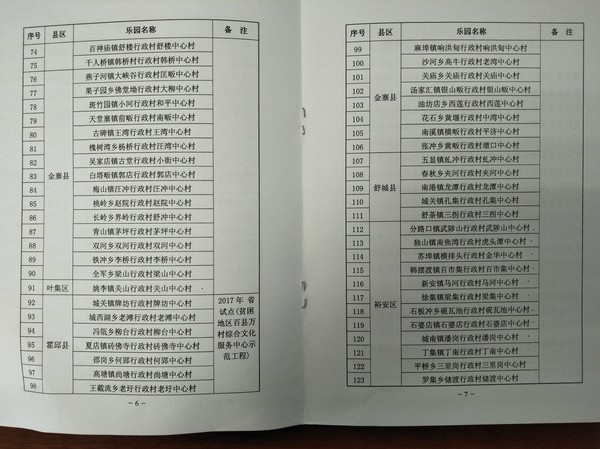 序号 县区 乐园名称 备 注
74 百神庙镇舒楼行政村舒楼中心村
75 千人桥镇韩桥行政村韩桥中心村
76 燕子河镇大峡谷行政村匡畈中心村
77 果子园乡佛堂坳行政村大柳中心村
78 斑竹园镇小河行政村和平中心村
79 天堂寨镇前畈行政村南畈中心村
80 古碑镇王湾行政村王湾中心村
81 槐树湾乡杨桥行政村汪冲中心村
82 吴家店镇古堂行政村小街中心村
83 金寨县 白塔畈镇郭店行政村郭店中心村
84 梅山镇汪冲行政村汪冲中心村
85 桃岭乡赵院行政村赵院中心村
86 长岭乡界岭行政村舒冲中心村
87 青山镇茅坪行政村茅坪中心村
88 双河乡双河行政村双河中心村
89 铁冲乡李桥行政村李桥中心村
90 全军乡梁山行政村梁山中心村
91 叶集区 姚李镇关山行政村关山中心村
92 城关镇牌坊行政村牌坊中心村
93 城西湖乡老滩行政村老滩中心村
94 冯瓴乡柳台行政村柳台中心村
95 霍邱县 夏店镇砖佛寺行政村砖佛寺中心村
96 邵岗乡何郢行政村何郢中心村
97 高塘镇尚塘行政村尚塘中心村
98 王截流乡老圩行政村老圩中心村
2017 年 省
试点(贫困
地区百县万
村综合文化
服务中心示
范工程)
- 6 -
序号 县区 乐园名称 备 注
99 麻埠镇响洪甸行政村响洪甸中心村
100 沙河乡高牛行政村老湾中心村
101 关庙乡关庙行政村关庙中心村
102 金寨县 汤家汇镇银山畈行政村银山畈中心村
103 油坊店乡西莲行政村西莲中心村
104 花石乡黄堰行政村中湾中心村
105 南溪镇横畈行政村平济中心村
106 张冲乡黄畈行政村塘口中心村
107 五显镇乩冲行政村乩冲中心村
108 春秋乡夹河行政村夹河中心村
109 舒城县 南港镇龙潭行政村龙潭中心村
110 城关镇孔集行政村孔集中心村
111 舒茶镇三拐行政村三拐中心村
112 分路口镇武陟山行政村武陟山中心村
113 独山镇南焦湾行政村虎头潭中心村
114 苏埠镇横排头行政村金华中心村
115 韩摆渡镇百市集行政村百市集中心村
116 新安镇马河行政村马河中心村
117 徐集镇梁集行政村梁集中心村
118 裕安区 石板冲乡砚瓦池行政村砚瓦池中心村
119 石婆店镇石婆店行政村石婆店中心村
120 城南镇潘岗行政村潘岗中心村
121 丁集镇丁南行政村丁南中心村
122 平桥乡三里岗行政村三里岗中心村
123 罗集乡储渡行政村储渡中心村
- 7 -